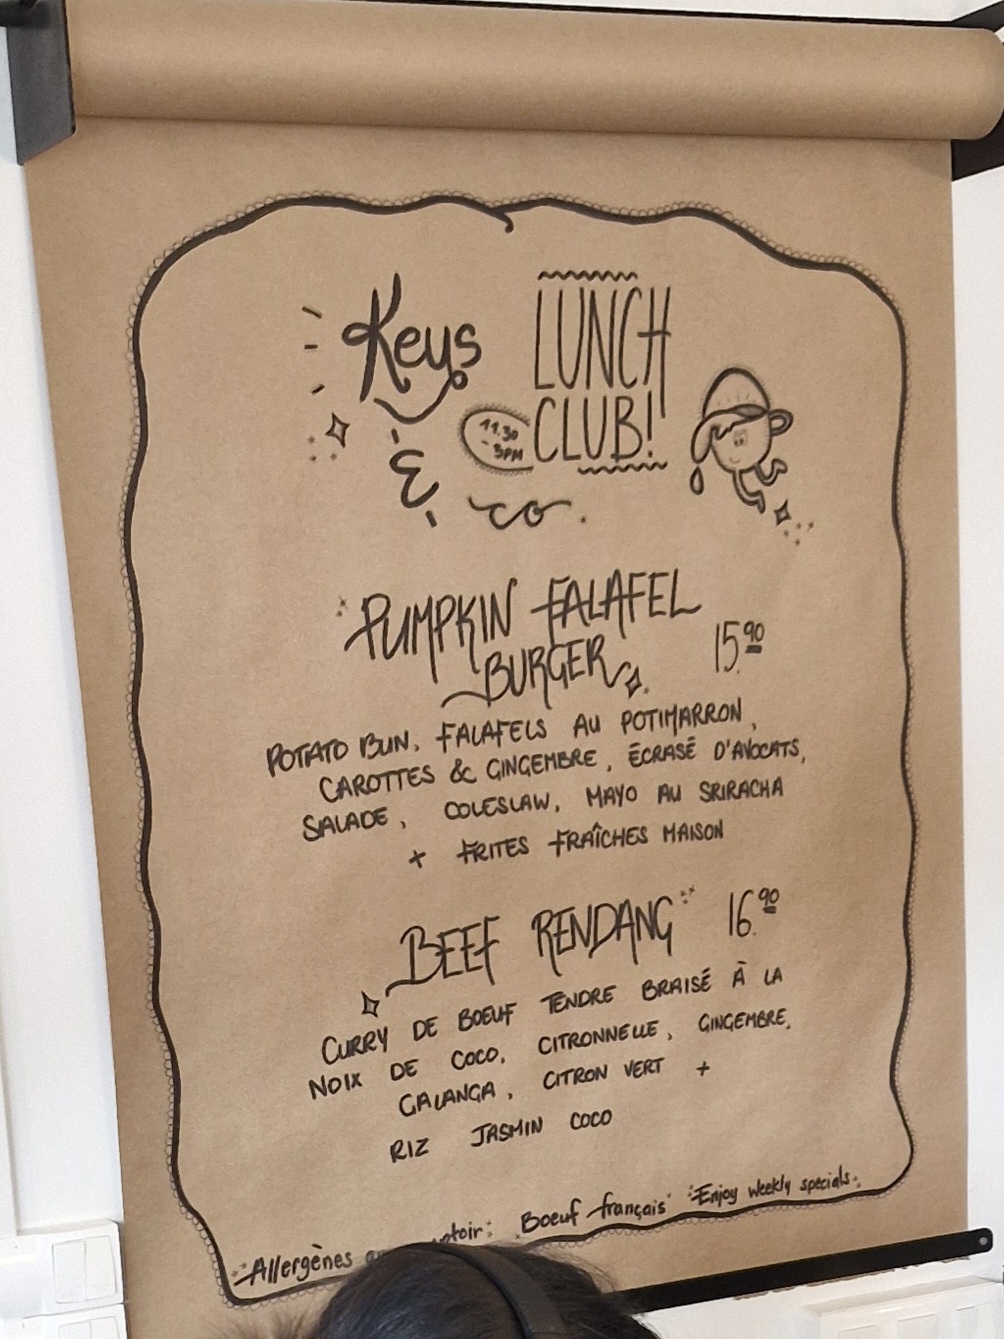 Keys
LUNCH
CLUB!
11.30
- 3PM
& co.
PUMPKIN FALAFEL
BURGER 15.90
POTATO BUN, FALAFELS AU POTIMARRON,
CAROTTES & GINGEMBRE, ÉCRASÉ D'AVOCATS,
SALADE, COLESLAW, MAYO AU SRIRACHA
+ FRITES FRAÎCHES MAISON
BEEF RENDANG 16.90
CURRY DE BOEUF TENDRE BRAISÉ À LA
NOIX DE COCO, CITRONNELLE, GINGEMBRE,
GALANGA, CITRON VERT +
RIZ JASMIN COCO
Allergènes Boeuf français Enjoy weekly specials